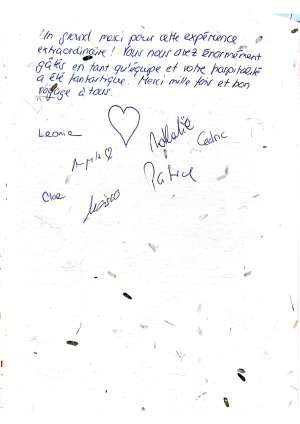 Un grand merci pour cette expérience
extraordinaire ! Vous nous avez énormément
gâtés en tant qu'équipe et votre hospitalité
a été fantastique. Merci mille fois et bon
voyage à tous.
Leonie
Nathalie
Cedric
Patrick
Cloe
Marco